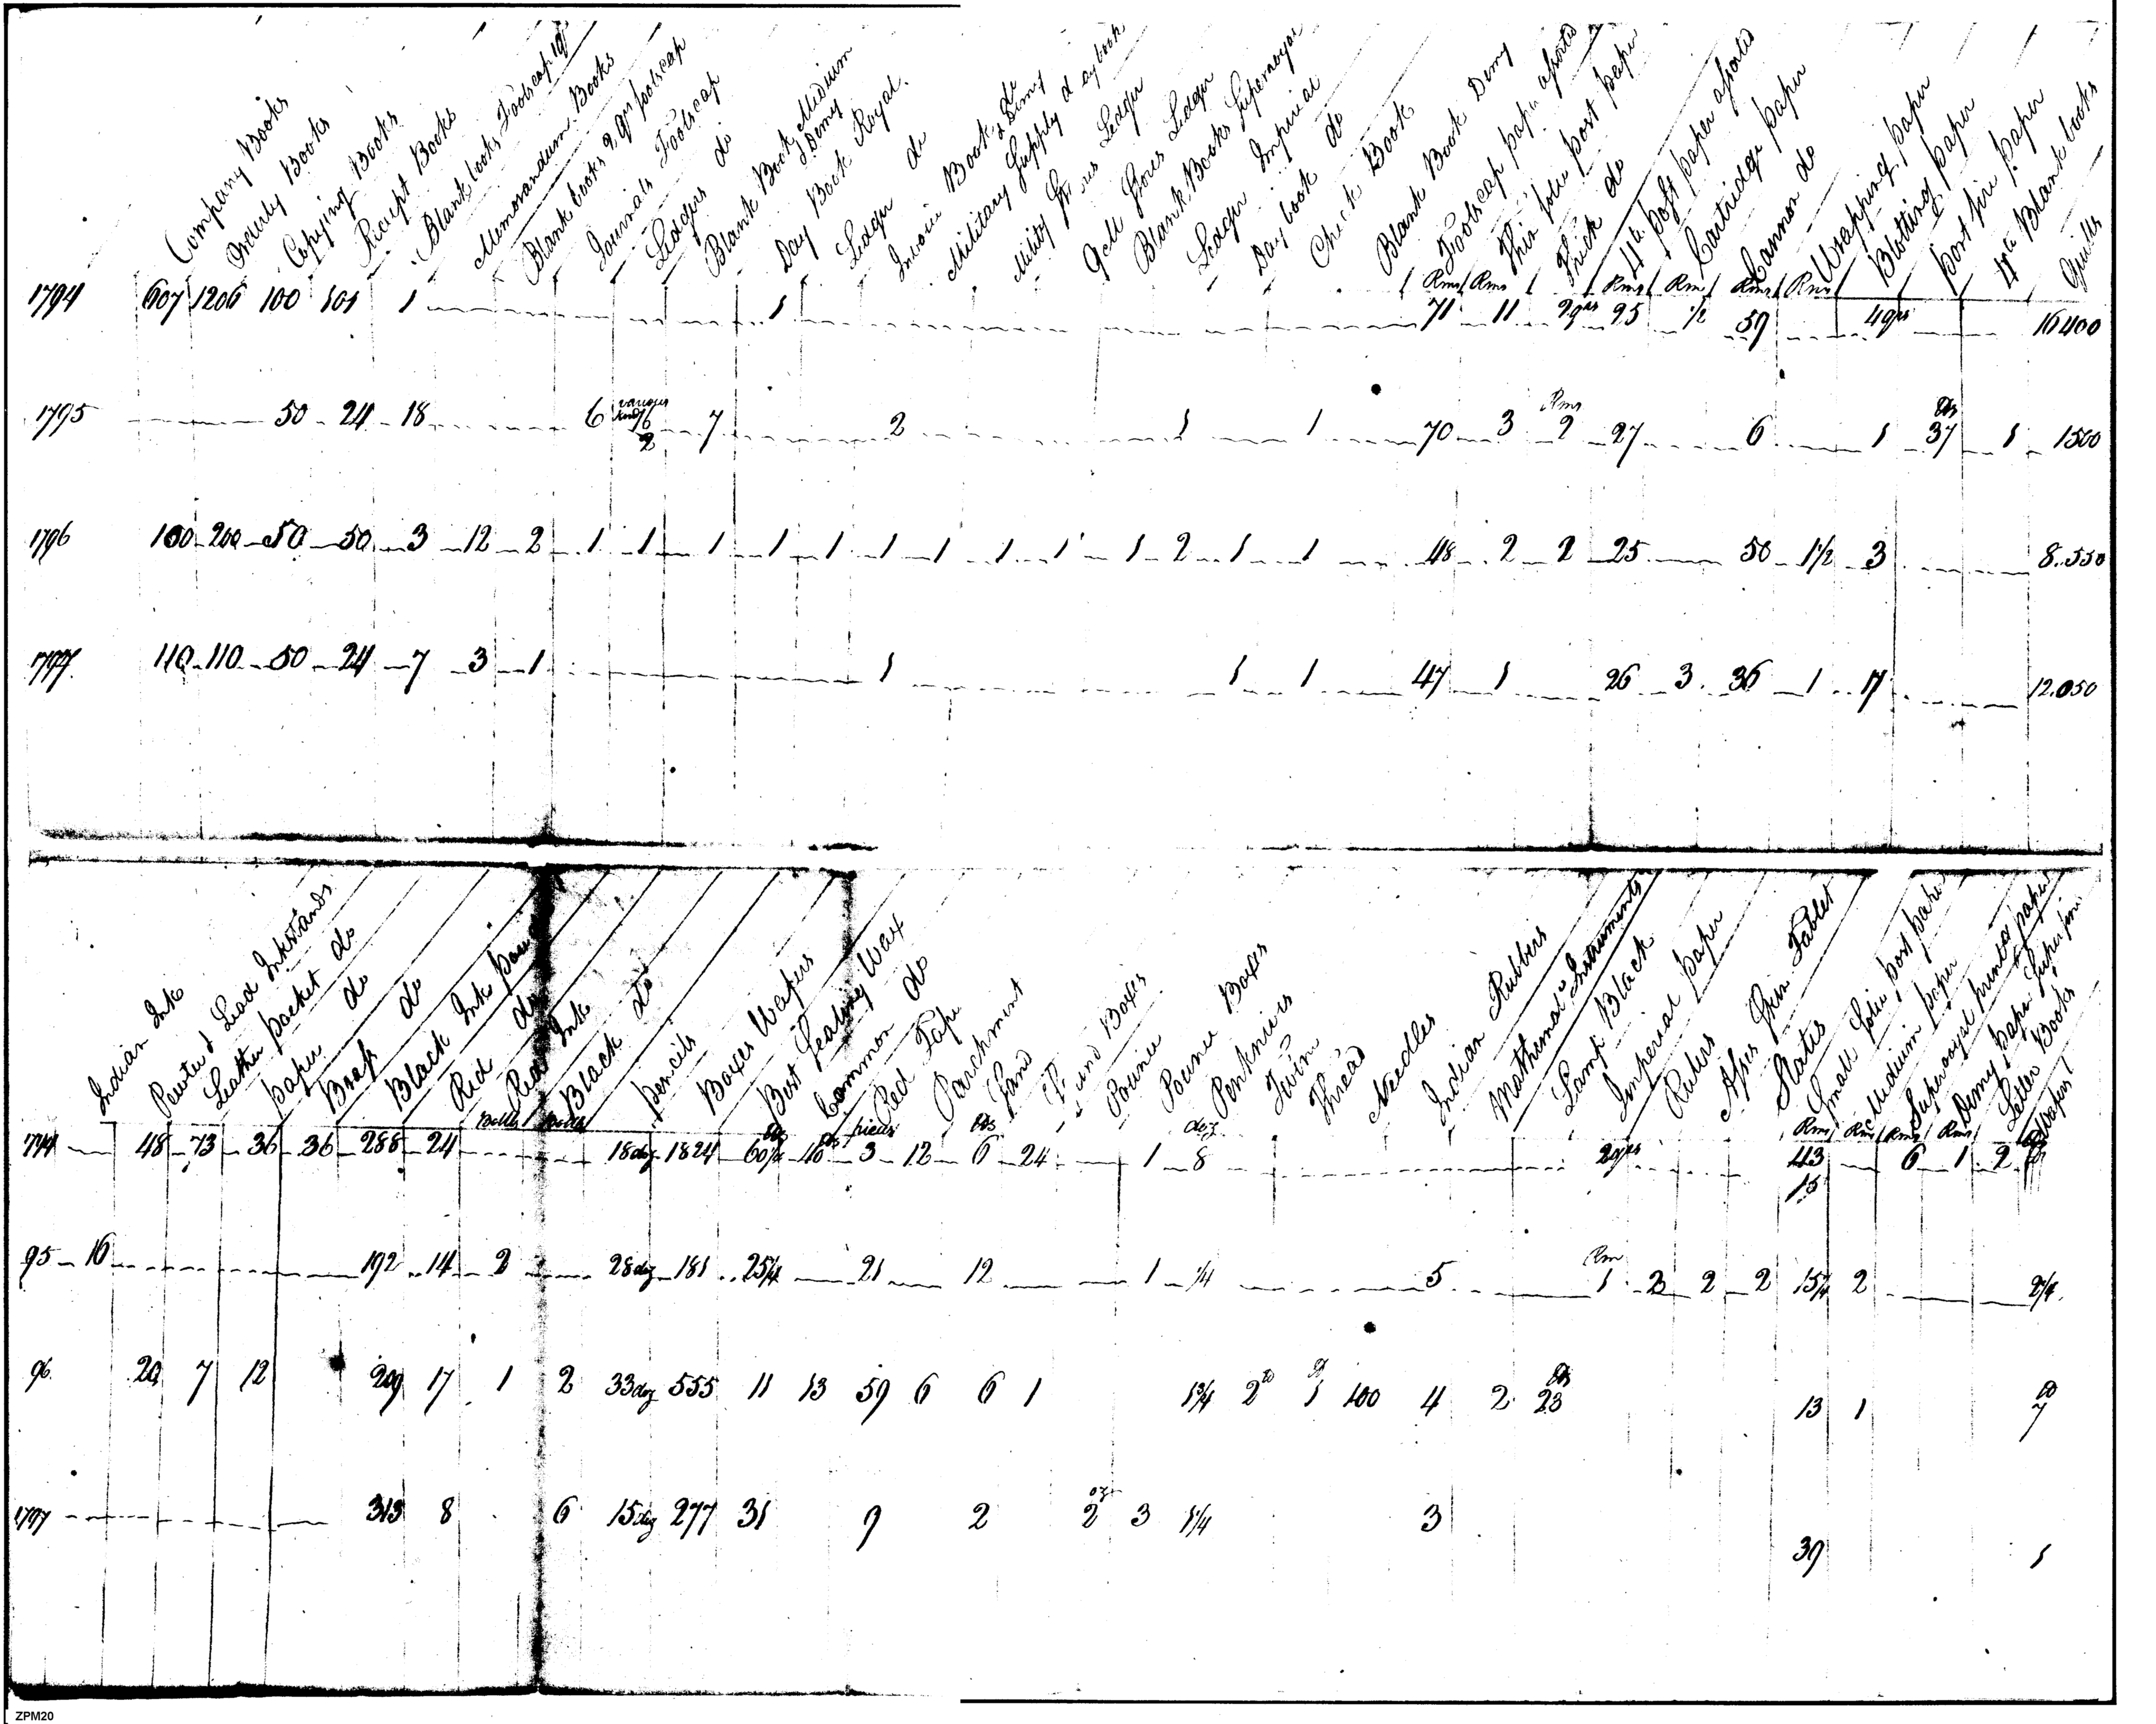 Company Books
Orderly Books
Copying Books
Receipt Books
Blank books Foolscap
Memorandum Books
Blank books 2 qrs foolscap
Journals Foolscap
Ledgers do
Blank Book Medium
Demy
Day Book Royal.
Ledger do
Invoice Book do
Demy
Military Supply daybook
Stores Ledger
Stores Ledger
Blank Books Superroyal
Ledger Imperial
Day book do
Check Book
Blank Book Demy
Foolscap paper assorted
Thin folio post paper
Thick do
4to post paper assorted
Cartridge paper
Cannon do
Wrapping paper
Blotting paper
paper
4to Blank books
Quills
Rms Rms Rms Rm Rms Rms
1794 607 1206 100 101 1 1 71 11 2qrs 95 1/2 59 4qrs 16400
various
kinds Rms lbs
1795 50 24 18 6 16 7 2 1 1 70 3 2 27 6 1 37 1 1500
2
1796 100 200 50 50 3 12 2 1 1 1 1 1 1 1 1 1 1 2 1 1 48 2 2 25 50 1 1/2 3 8.550
1797 110 110 50 24 7 3 1 1 1 1 47 1 26 3 36 1 17 12.050
Indian Ink
Pewter & Lead Inkstands
Leather pocket do
paper do
Brass do
Black Ink powder
Red do
Red Ink
Black do
Pencils
Boxes Wafers
Best Sealing Wax
Common do
Red Tape
Parchment
Sand
Sand Boxes
Pounce
Pounce Boxes
Penknives
Twine
Thread
Needles
Indian Rubbers
Mathemal Instruments
Lamp Black
Imperial paper
Rulers
Asses Skin Tablet
Slates
Small folio post paper
Medium paper
Superroyal paper
Demy paper Superfine
Letter Books
Wafers
Bottles Bottles lbs lbs pieces lbs doz Rms Rms Rms Rms
1794 48 73 36 36 288 24 18doz 1824 60 1/2 10 3 12 6 24 1 8 2qrs 43 6 1 2
15
Rm
95 16 192 14 2 28doz 181 25 1/4 21 12 1 1/4 5 1 2 2 2 15 1/4 2 2 1/4
lb lbs lb
96 20 7 12 209 17 1 2 33doz 555 11 13 59 6 6 1 1 3/4 2 1 100 4 2 23 13 1 7
oz
1797 313 8 6 15doz 277 31 9 2 2 3 1 1/4 3
39 1
ZPM20